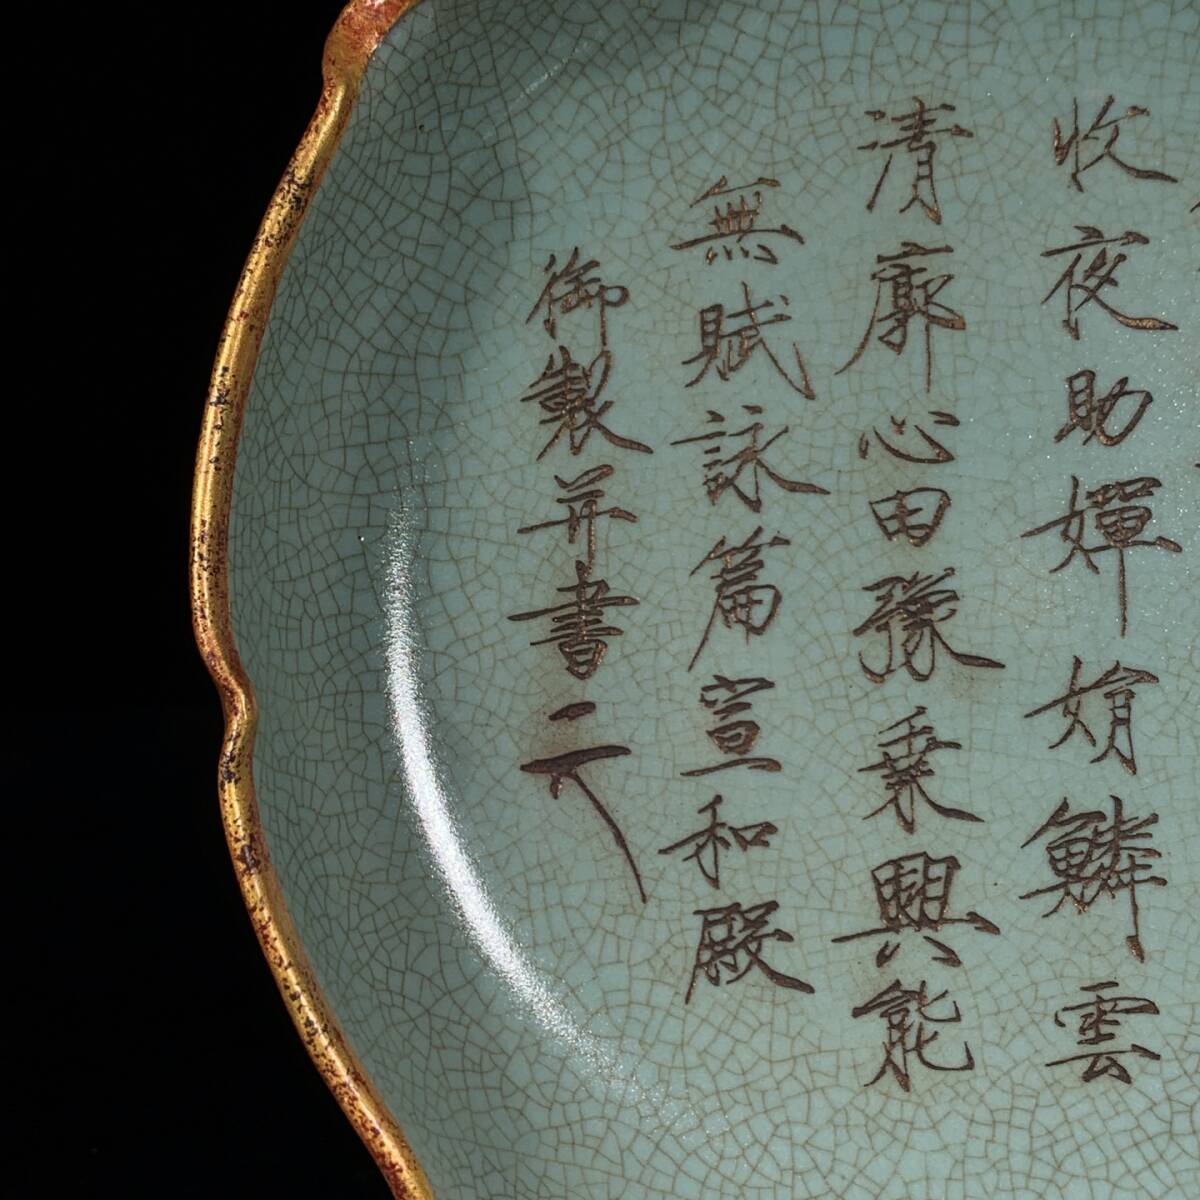 收夜助嬋娟鱗雲
清廓心田豫乗興能
無賦詠篇宣和殿
御製并書